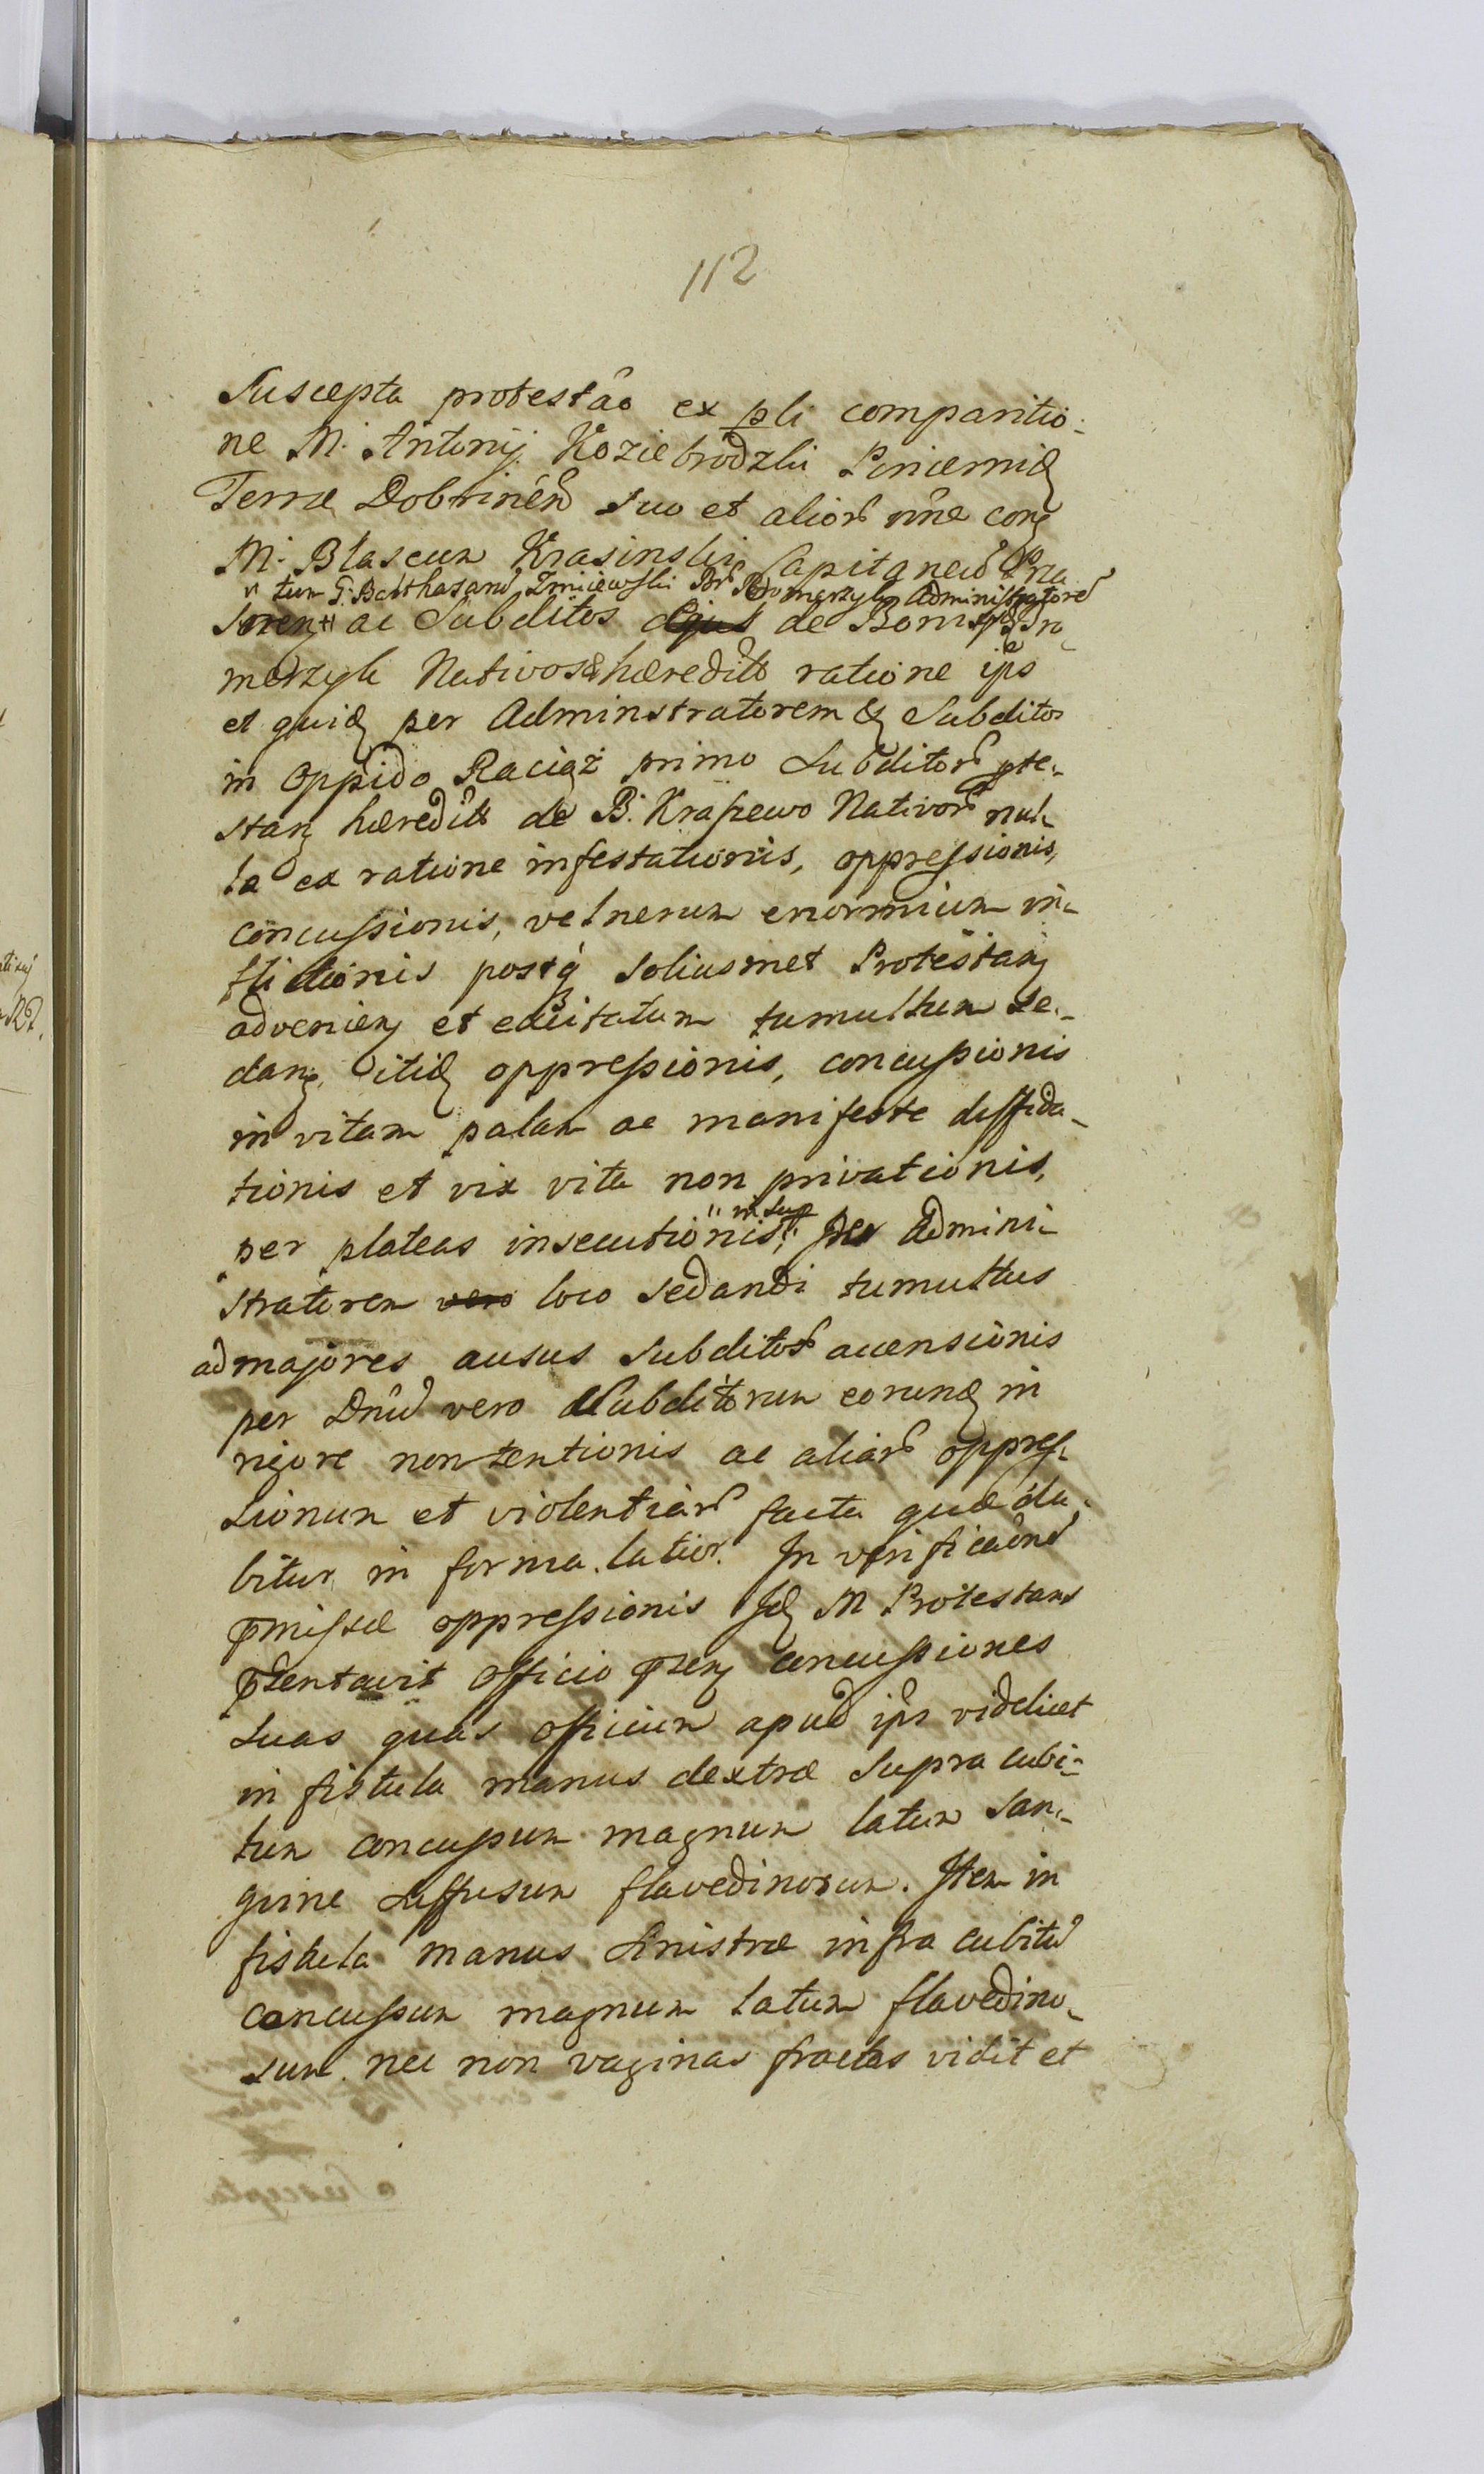 112
Suscepta protestao ex pli comparitio-
ne M. Antonij Koziebrodzki Pincernid
Terræ Dobrinen suo et alior nne con
M. Blaseum Krasinski Capitaneu
tum G. Balthasaru Zmiiewski Administratore
ac Subditos ejus de Bonis
merzyk Nativos & hæredits ratione ips
et quid per Adminstratorem & Subditos
in Oppido Raciąż primo Subditor pte-
stan hæredits de B. Krasewo Nativor nul-
la ea ratione infestationis, oppressionis,
concussionis, vulnerum enormium in-
flictionis postq soliusmet Protestan
advenien et excitatum tumultum se-
dan, itid oppressionis, concussionis
in vitam palam ac manifeste diffida-
tionis et vix vita non privationis,
per plateas insecutionis, insup per Admini-
stratorem vero loco sedandi tumultus
ad majores ausus subditor accensionis
per Dnu vero Subditorum eorund in
rigore non tentionis ac aliar oppres-
sionum et violentiar facta quæ da-
bitur in forma latior. In verificaone
pmissæ oppressionis Id M Protestans
psentavit Officio psen concussiones
suas quas officium apud ips videlicet
in fistula manus dextræ supra cubi-
tum concussum magnum latum san-
guine suffusum flavedinosum. Item in
fistula manus sinistræ infra cubitu
concussum magnum latum flavedino-
sum nec non vaginas fractas vidit et